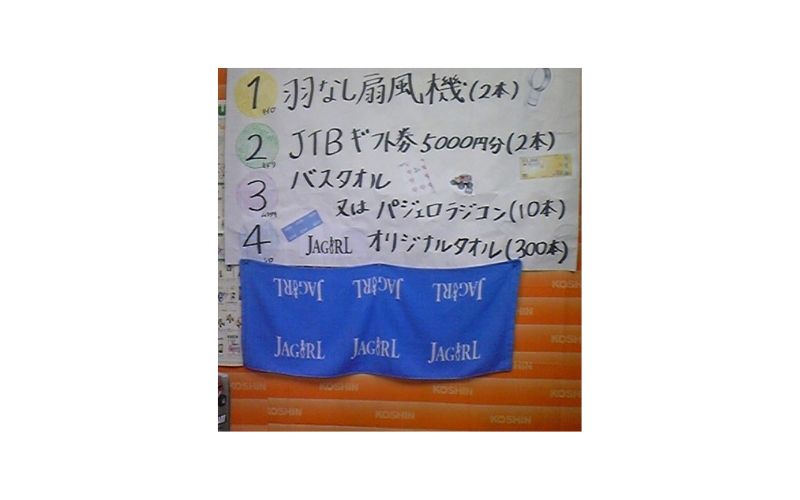 1 羽なし扇風機(2本)
キイロ
2 JTBギフト券5000円分(2本)
ミドリ
3 バスタオル
ムラサキ
又は パジェロラジコン(10本)
4 JAGiRL オリジナルタオル(300本)
シロ
JAGiRL JAGiRL JAGiRL
JAGiRL JAGiRL JAGiRL
KOSHIN
KOSHIN
KOSHIN
KOSHIN KOSHIN KOSHIN